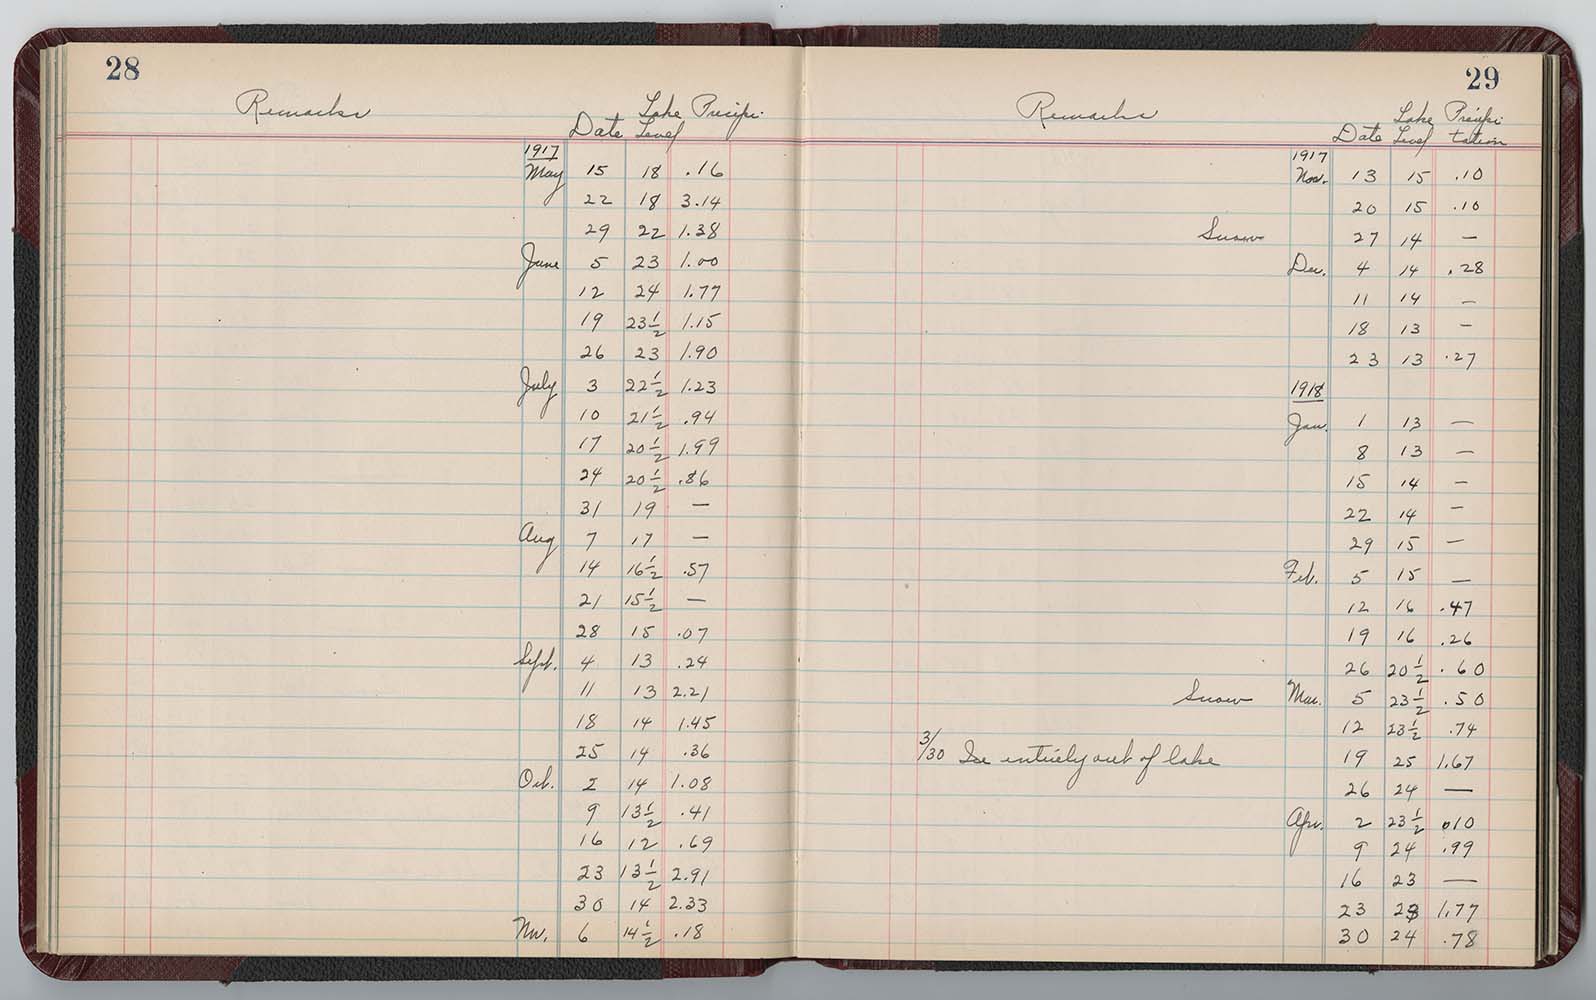 28
Remarks Date Lake Level Precipi.
1917
May 15 18 .16
22 18 3.14
29 22 1.38
June 5 23 1.00
12 24 1.77
19 23 1/2 1.15
26 23 1.90
July 3 22 1/2 1.23
10 21 1/2 .94
17 20 1/2 1.99
24 20 1/2 .86
31 19 —
Aug 7 17 —
14 16 1/2 .57
21 15 1/2 —
28 15 .07
Sept. 4 13 .24
11 13 2.21
18 14 1.45
25 14 .36
Oct. 2 14 1.08
9 13 1/2 .41
16 12 .69
23 13 1/2 2.91
30 14 2.33
Nov. 6 14 1/2 .18
29
Remarks Date Lake Level Precipitation
1917
Nov. 13 15 .10
20 15 .10
Snow 27 14 —
Dec. 4 14 .28
11 14 —
18 13 —
23 13 .27
1918
Jan. 1 13 —
8 13 —
15 14 —
22 14 —
29 15 —
Feb. 5 15 —
12 16 .47
19 16 .26
26 20 1/2 .60
Snow Mar. 5 23 1/2 .50
12 23 1/2 .74
3/30 Ice entirely out of lake 19 25 1.67
26 24 —
Apr. 2 23 1/2 .10
9 24 .99
16 23 —
23 23 1.77
30 24 .78